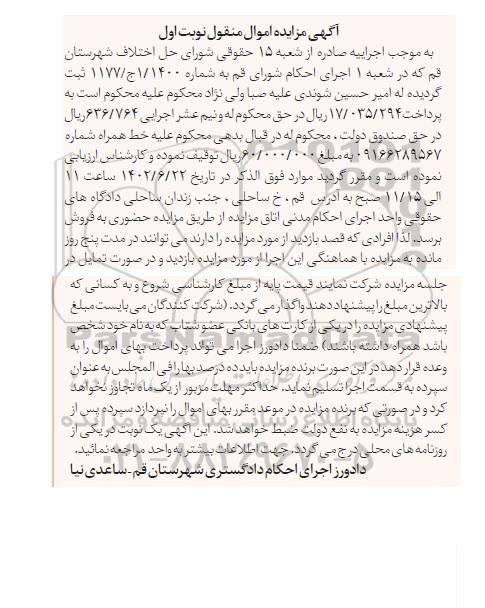 آگهی مزایده اموال منقول نوبت اول
به موجب اجراییه صادره از شعبه ۱۵ حقوقی شورای حل اختلاف شهرستان
قم که در شعبه ۱ اجرای احکام شورای قم به شماره ۱/۱۴۰۰ج/۱۱۷۷ ثبت
گردیده له امیر حسین شوندی علیه صبا ولی نژاد محکوم علیه محکوم است به
پرداخت ۱۷/۰۳۵/۲۹۴ ریال در حق محکوم له و نیم عشر اجرایی ۶۳۶/۷۶۴ ریال
در حق صندوق دولت ، محکوم له در قبال بدهی محکوم علیه خط همراه شماره
۰۹۱۶۶۲۸۹۵۶۷ به مبلغ ۶۰/۰۰۰/۰۰۰ ریال توقیف نموده و کارشناس ارزیابی
نموده است و مقرر گردید موارد فوق الذکر در تاریخ ۱۴۰۲/۶/۲۲ ساعت ۱۱
الی ۱۱/۱۵ صبح به آدرس قم ، خ ساحلی ، جنب زندان ساحلی دادگاه های
حقوقی واحد اجرای احکام مدنی اتاق مزایده از طریق مزایده حضوری به فروش
برسد. لذا افرادی که قصد بازدید از مورد مزایده را دارند می توانند در مدت پنج روز
مانده به مزایده با هماهنگی این اجرا از مورد مزایده بازدید و در صورت تمایل در
جلسه مزایده شرکت نمایند قیمت پایه از مبلغ کارشناسی شروع و به کسانی که
بالاترین مبلغ را پیشنهاد دهند واگذار می گردد. (شرکت کنندگان می بایست مبلغ
پیشنهادی مزایده را در یکی از کارت های بانکی عضو شتاب که به نام خود شخص
باشد همراه داشته باشند) ضمنا دادورز اجرا می تواند پرداخت بهای اموال را به
وعده قرار دهد در این صورت برنده مزایده باید ده درصد بها را فی المجلس به عنوان
سپرده به قسمت اجرا تسلیم نماید. حداکثر مهلت مزبور از یک ماه تجاوز نخواهد
کرد و در صورتی که برنده مزایده در موعد مقرر بهای اموال را نپردازد سپرده پس از
کسر هزینه مزایده به نفع دولت ضبط خواهد شد. این آگهی یک نوبت در یکی از
روزنامه های محلی درج می گردد. جهت اطلاعات بیشتر به واحد مراجعه نمائید.
دادورز اجرای احکام دادگستری شهرستان قم - ساعدی نیا